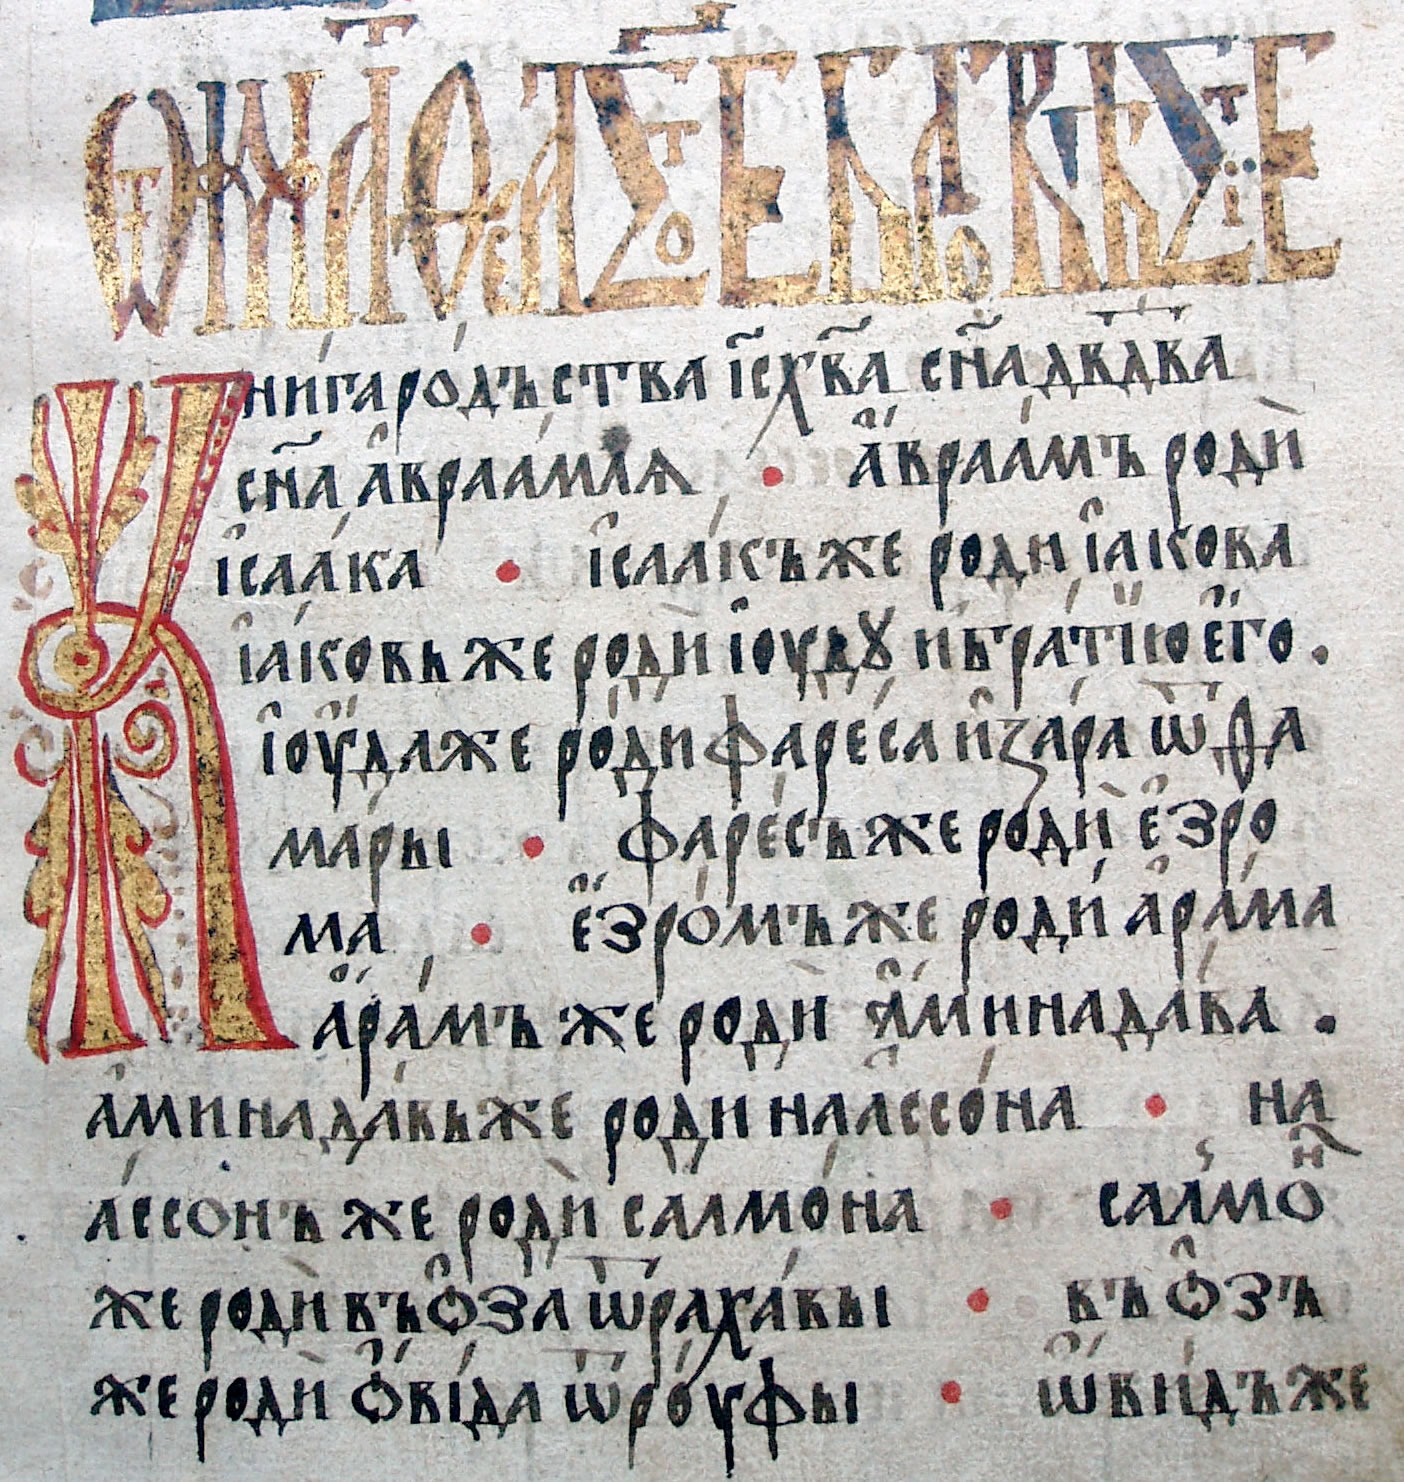 кни́га ро́дъства і҆с҃ хв҃а сн҃а дв҃два
сн҃а а҆враа́млѧ • а҆враамъ родѝ
і҆саа́ка • і҆саа́къ же роди і҆а́кова
і҆а́ковь же родѝ і҆оудꙋ и бра́тїю е҆го.
і҆оу́да же роди фаре́са и҆ за́ра ѿ ѳа
ма́ры • фаре́съ же родѝ е҆зро
ма • е҆зро́мъ же роди́ а҆ра́ма
а҆ра́мъ же родѝ а҆мина́дава .
а҆мина́давь же роди наассо́на • на
ассонъ же родѝ салмо́на • салмоⷩ҇
же родѝ въо҆за ѿ раха́вы • въо҆зъ
же родѝ ѻ҆ві́да ѿ роу́фы • ѡ҆ви́дъ же